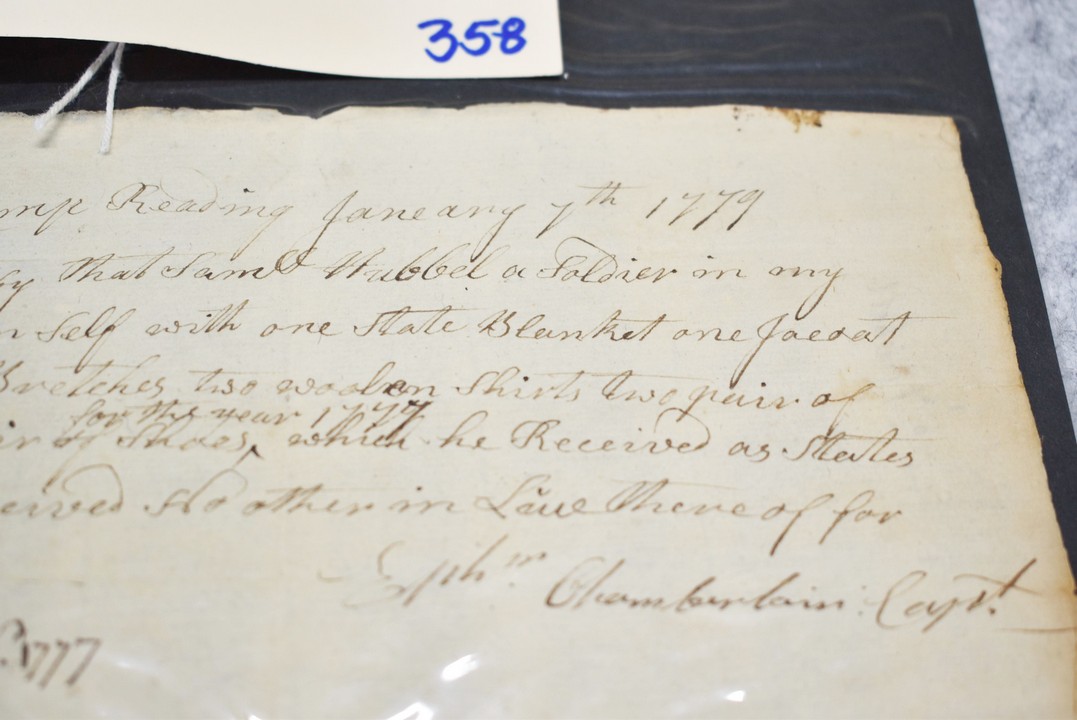 358
mp Reading Janeary 7th 1779
fy that Saml Hubbel a Soldier in my
n Self with one State Blanket one Jacoat
Bretches two woolen Shirts two pair of
for the year 1777
ir of Shoes, which he Received as States
eived No other in Liue there of for
Ephm Chamberlain Capt.
1777